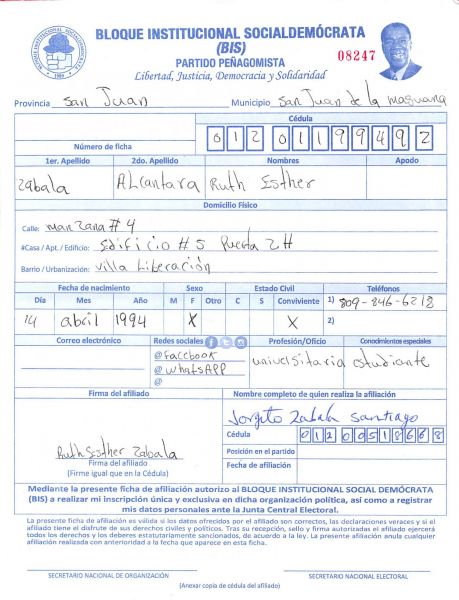 BLOQUE INSTITUCIONAL SOCIALDEMÓCRATA
(BIS)
PARTIDO PEÑAGOMISTA
Libertad, Justicia, Democracia y Solidaridad
08247
Provincia San Juan Municipio San Juan de la Maguana
Cédula
Número de ficha 01201199492
1er. Apellido 2do. Apellido Nombres Apodo
Zabala Alcantara Ruth Esther
Domicilio Físico
Calle: manzana # 4
#Casa / Apt. / Edificio: Edificio # 5 Puerta 2H
Barrio / Urbanización: Villa Liberación
Fecha de nacimiento Sexo Estado Civil Teléfonos
Día Mes Año M F Otro C S Conviviente 1) 809-846-6218
14 abril 1994 X X 2)
Correo electrónico Redes sociales Profesión/Oficio Conocimientos especiales
@Facebook
@WhatsAPP universitaria estudiante
@
Firma del afiliado Nombre completo de quien realiza la afiliación
Jorgito Zabala Santiago
Cédula 01200518668
Ruth Esther Zabala Posición en el partido
Firma del afiliado
(Firme igual que en la Cédula) Fecha de afiliación
Mediante la presente ficha de afiliación autorizo al BLOQUE INSTITUCIONAL SOCIAL DEMÓCRATA
(BIS) a realizar mi inscripción única y exclusiva en dicha organización política, así como a registrar
mis datos personales ante la Junta Central Electoral.
La presente ficha de afiliación es válida si los datos ofrecidos por el afiliado son correctos, las declaraciones veraces y si el
afiliado tiene el disfrute de sus derechos civiles y políticos. Tras su recepción, sello y firma autorizadas el afiliado ejercerá
todos los derechos y los deberes estatutariamente sancionados, de acuerdo a la ley. La presente afiliación anula cualquier
afiliación realizada con anterioridad a la fecha que aparece en esta ficha.
SECRETARIO NACIONAL DE ORGANIZACIÓN SECRETARIO NACIONAL ELECTORAL
(Anexar copia de cédula del afiliado)